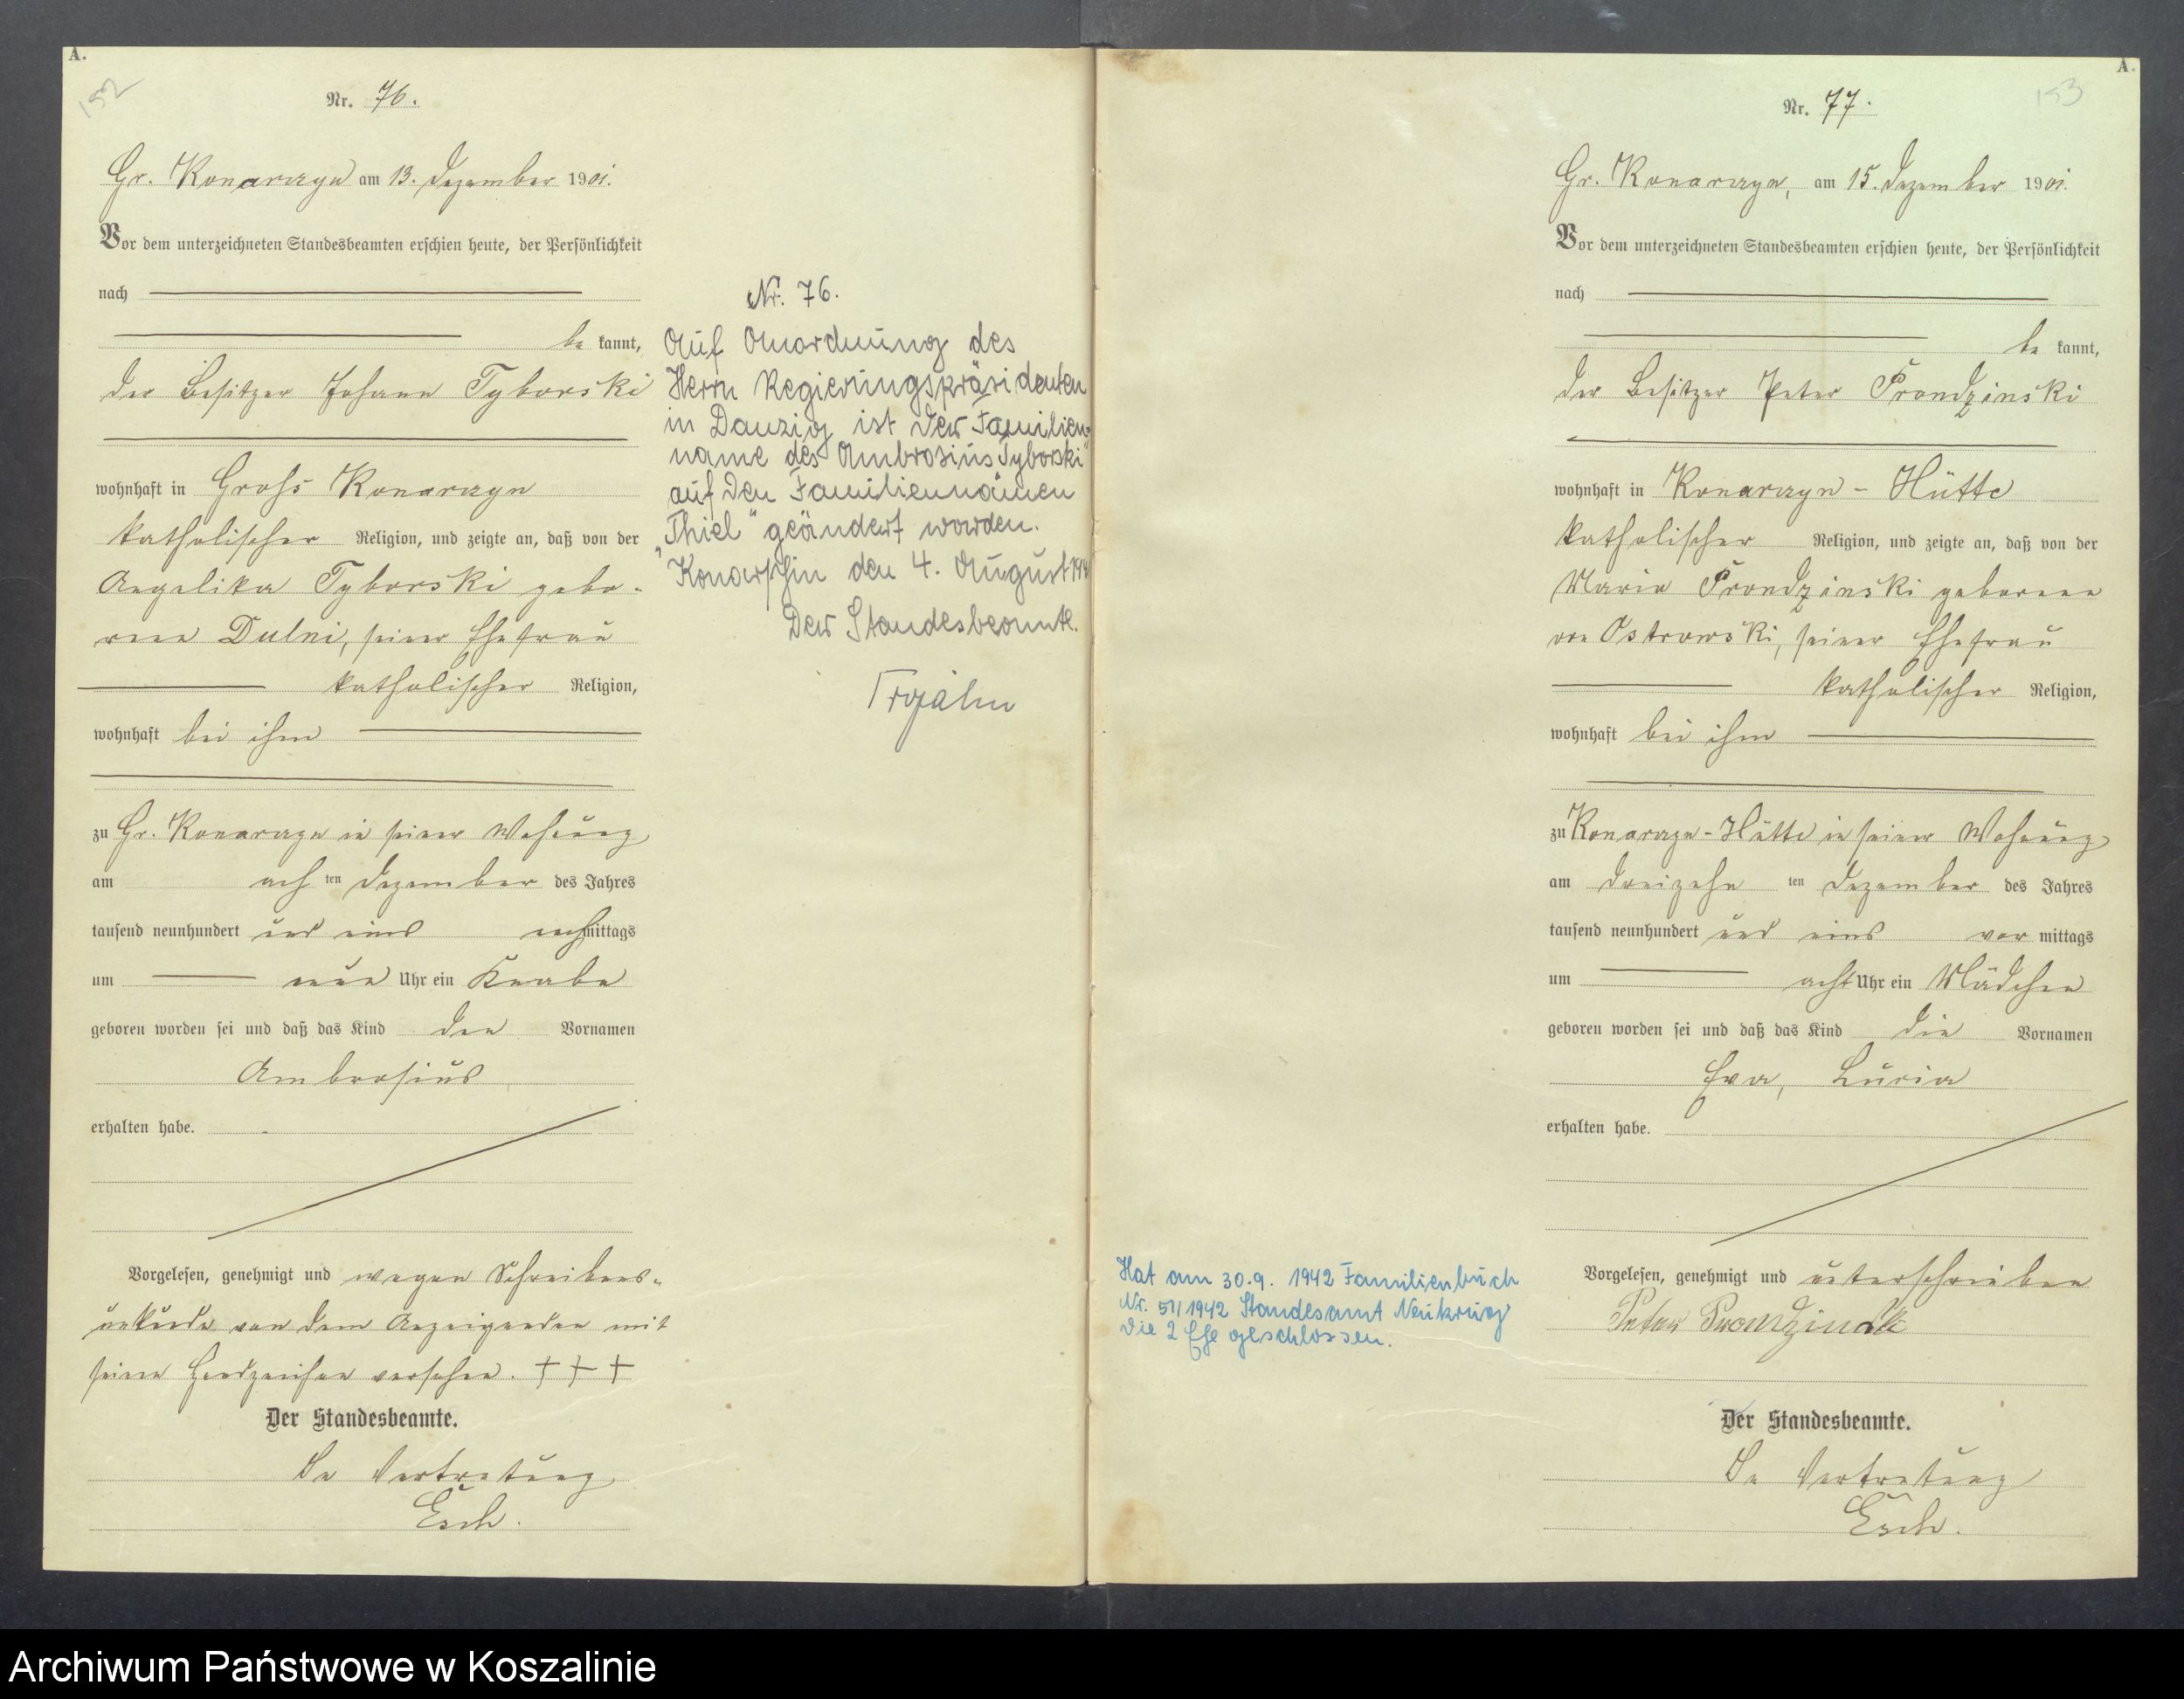 A.
152
Nr. 76.
Gr. Konarczyn am 13. Dezember 1901.
Vor dem unterzeichneten Standesbeamten erschien heute, der Persönlichkeit
nach
be kannt,
der Besitzer Johann Tyborski
wohnhaft in Groß Konarczyn
katholischer Religion, und zeigte an, daß von der
Angelika Tyborski gebo-
rene Dulni, seiner Ehefrau
katholischer Religion,
wohnhaft bei ihm
zu Gr. Konarczyn in seiner Wohnung
am ach ten Dezember des Jahres
tausend neunhundert und eins nachmittags
um neun Uhr ein Knabe
geboren worden sei und daß das Kind den Vornamen
Ambrosius
erhalten habe.
Vorgelesen, genehmigt und wegen Schreibens-
unkunde von dem Anzeigenden mit
seinen Handzeichen versehen. + + +
Der Standesbeamte.
In Vertretung
Esch.
Nr. 76.
Auf Anordnung des
Herrn Regierungspräsidenten
in Danzig ist der Familien-
name des Ambrosius Tyborski"
auf den Familiennamen
"Thiel" geändert worden.
Konarschin den 4. August 194
Der Standesbeamte.
Trojahn
A.
153
Nr. 77.
Gr. Konarczyn, am 15. Dezember 1901.
Vor dem unterzeichneten Standesbeamten erschien heute, der Persönlichkeit
nach
be kannt,
der Besitzer Peter Prondzinski
wohnhaft in Konarczyn - Hütte
katholischer Religion, und zeigte an, daß von der
Maria Prondzinski geborene
von Ostrowski, seiner Ehefrau
katholischer Religion,
wohnhaft bei ihm
zu Konarczyn - Hütte in seiner Wohnung
am dreizehn ten Dezember des Jahres
tausend neunhundert und eins vor mittags
um acht Uhr ein Mädchen
geboren worden sei und daß das Kind die Vornamen
Eva, Lucia
erhalten habe.
Vorgelesen, genehmigt und unterschrieben
Peter Prondzinski
Der Standesbeamte.
In Vertretung
Esch.
Hat am 30.9. 1942 Familienbuch
Nr. 51/1942 Standesamt Neukrug
die 2 Ehe geschlossen.
Archiwum Państwowe w Koszalinie